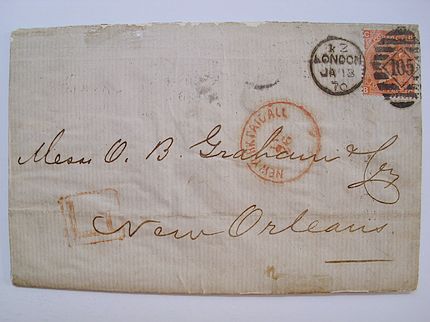 LONDON
JA 13
70
105
NEW YORK PAID ALL
Messrs O. B. Graham & Co
New Orleans.